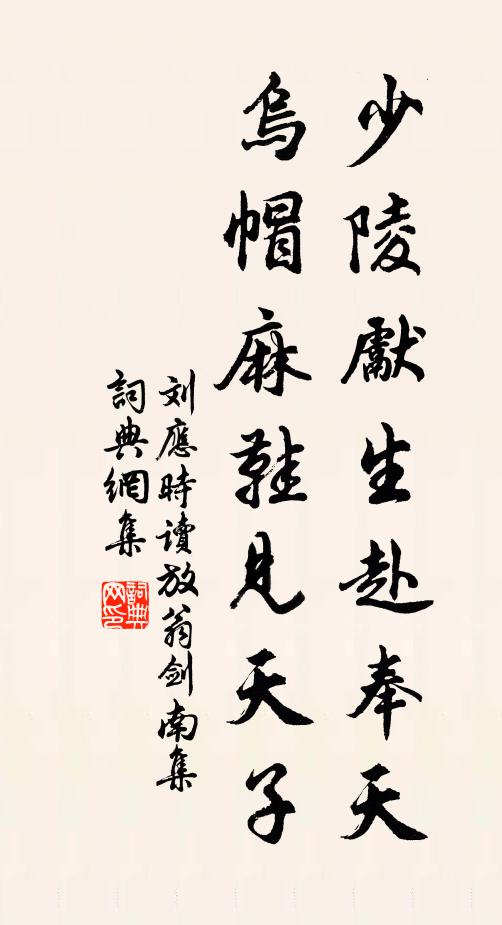 少陵獻生赴奉天
烏帽麻鞋見天子
刘應時讀放翁剑南集
詞典網集
詞典网印